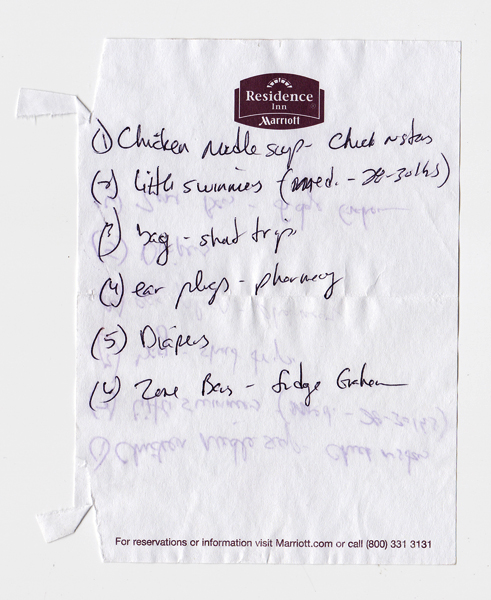 Residence
Inn
Marriott
(1) Chicken noodle soup - Check
(2) little swimmers (med. - 20-30lbs)
(3) bag - short trips
(4) ear plugs - pharmacy
(5) Diapers
(6) Zone Bars - fudge Graham
For reservations or information visit Marriott.com or call (800) 331 3131